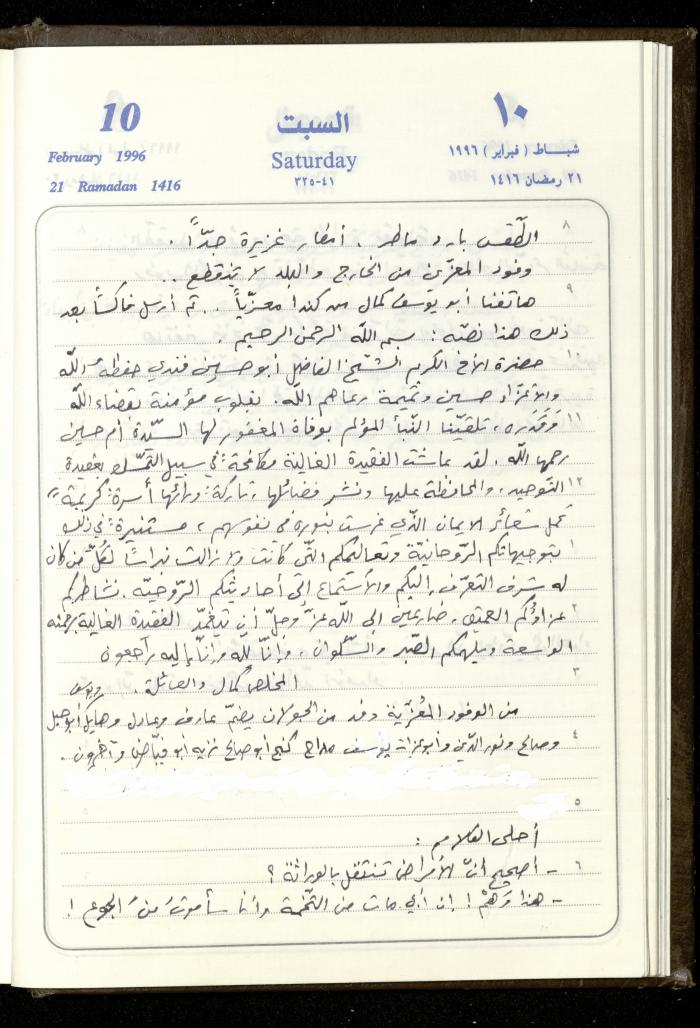 10
السبت
١٠
February 1996
Saturday
شباط ( فبراير ) ١٩٩٦
21 Ramadan 1416
٣٢٥-٤١
٢١ رمضان ١٤١٦
٨
الطّقس بارد ماطر . أمطار غزيرة جدّاً .
وفود المعزّين من الخارج والبلد لا تنقطع ..
٩
هاتفنا أبو يوسف كمال من كندا معزّياً .. ثم أرسل فاكساً بعد
ذلك هذا نصّه : بسم الله الرحمن الرحيم .
١٠
حضرة الأخ الكريم الشيخ الفاضل أبو حسين فندي حفظه الله
والأعزّاء حسين وتميمة رعاهم الله . بقلوب مؤمنة بقضاء الله
١١
وَقَدَره ، تلقّينا النّبأ المؤلم بوفاة المغفور لها السيّدة أم حسين
رحمها الله . لقد عاشت الفقيدة الغالية مكافحة في سبيل التمسّك بعقيدة
١٢
التّوحيد ، والمحافظة عليها ونشر فضائلها ، تاركة ورائها أسرة كريمة
تحمل شعائر الايمان الذّي غرست بذوره في نفوسهم ، مستنيرة في ذلك
١
بتوجيهاتكم الرّوحانيّة وتعاليمكم التّي كانت ولا زالت نبراسًا لكلّ من كان
له شرف التعرّف إليكم والأستماع إلى أحاديثكم الرّوحيّة . نشاطركم
٢
عزاؤكم العميق ، ضارعين إلى الله عزّ وجلّ أن يتغمّد الفقيدة الغالية برحمته
الواسعة ويلهمكم الصّبر والسّلوان . وإنّا لله وإنّا إليه راجعون
٣
المخلص كمال والعائلة .
من الوفود المُعزّية وفد من الجولان يضمّ عارف وعادل وهايل أبو جبل
٤
وصالح ونور الدّين وأبو عزات يوسف صلاح كنج أبو صالح نزيه أبو فيّاض وآخرون .
٥
أحلى الكلام :
٦
- أصحيح أنّ الأمراض تنتقل بالوراثة ؟
- هذا وَهْمٌ ! إن أبي مات من التّخمة وأنا سأموتُ منَ الجوع !